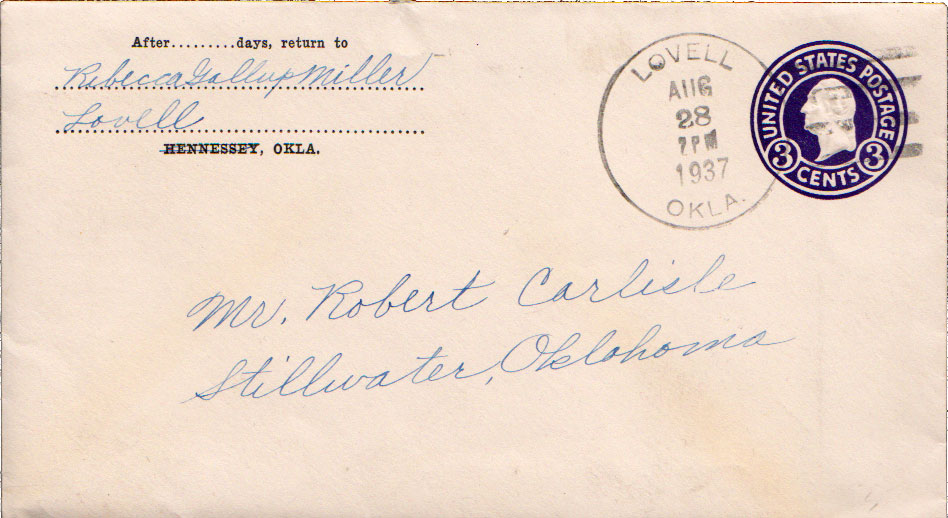 After.........days, return to
Rebecca Gallup Miller
Lovell
HENNESSEY, OKLA.
LOVELL
AUG
28
7 PM
1937
OKLA.
UNITED STATES POSTAGE
3 CENTS 3
Mr. Robert Carlisle
Stillwater, Oklahoma